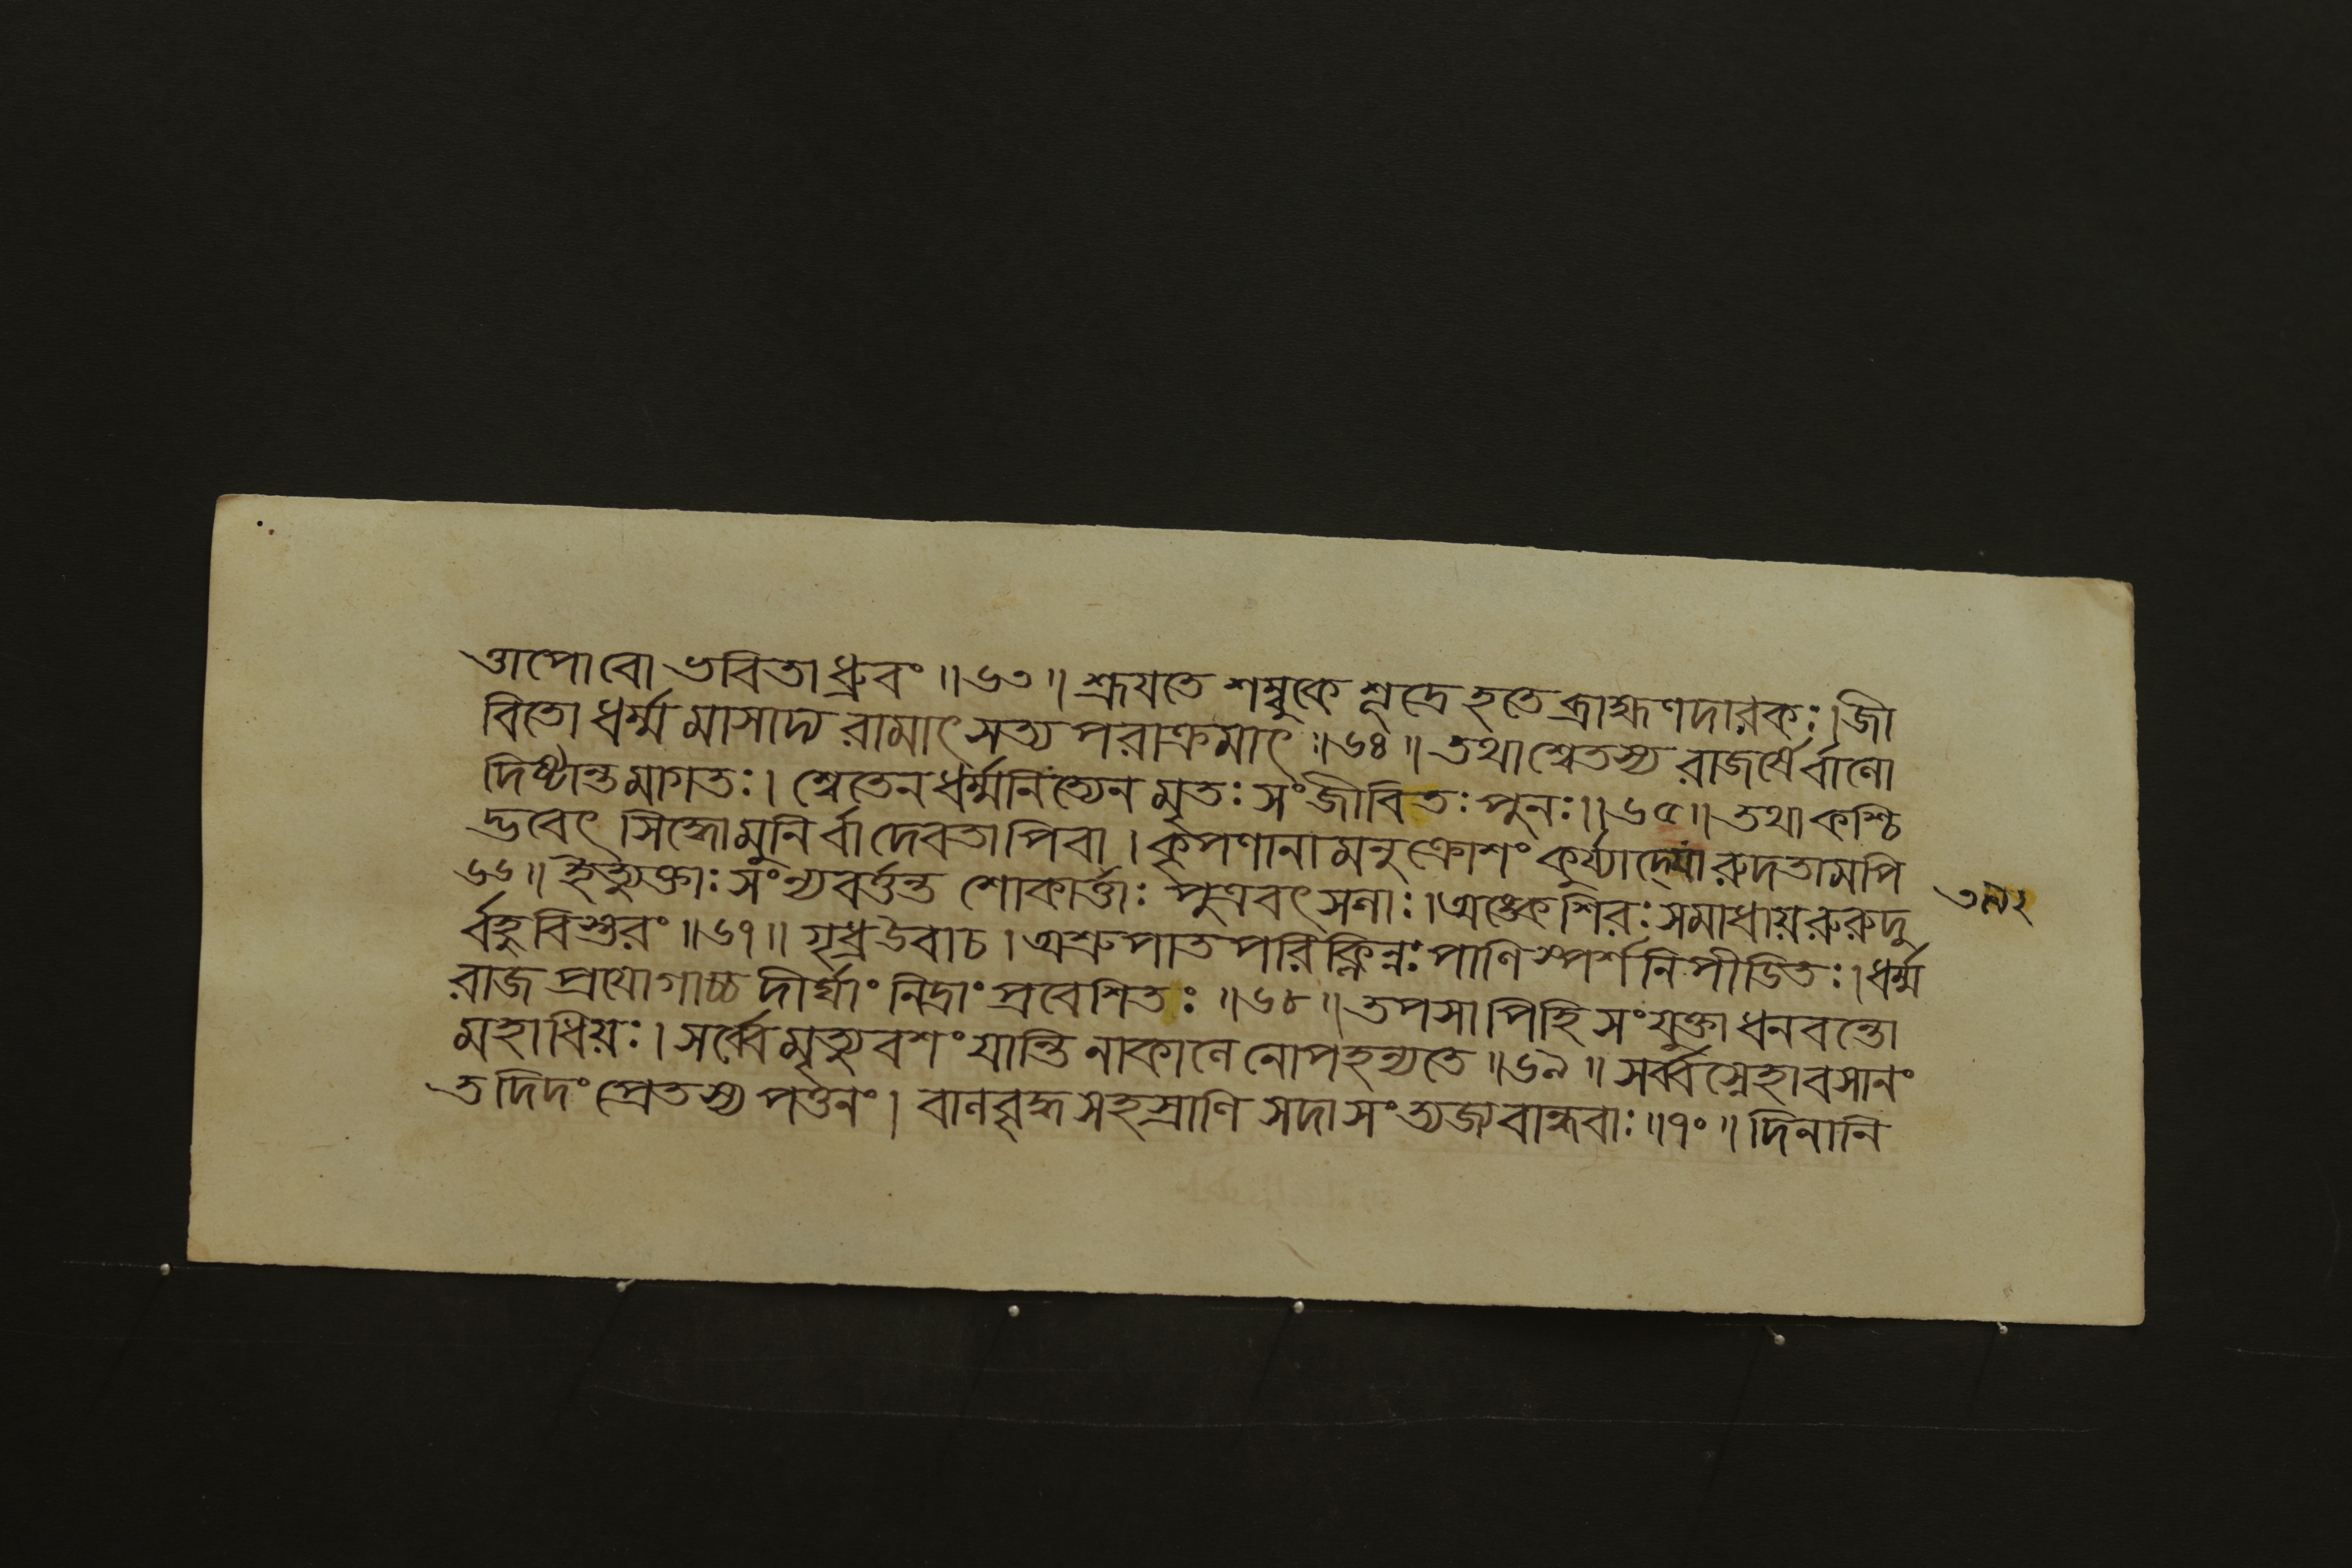 ত্তাপোবো ভবিতা ধ্রুবং ॥ ৬৩ ॥ শ্রূযতে শম্বুকে শূদ্রে হতে ব্রাহ্মণদারকঃ । জী
বিতো ধর্ম্মমাসাদ্য রামাৎ সত্য পরাক্রমাৎ ॥ ৬৪ ॥ তথা শ্বেতস্য রাজর্ষের্বালো
দিষ্টান্তমাগতঃ । শ্বেতেন ধর্ম্মনিত্যেন মৃতঃ সংজীবিতঃ পুনঃ ॥ ৬৫ ॥ তথা কশ্চি
দ্ভবেৎ সিদ্ধোমুনির্বা দেবতাপিবা । কৃপণানামনুক্রোশং কুর্য্যাদ্বো রুদতামপি
৬৬ ॥ ইত্যুক্তাঃ সংন্যবর্ত্তন্ত শোকার্ত্তাঃ পুত্রবৎসলাঃ । অঙ্কে শিরঃ সমাধায় রুরুদু
র্বহুবিস্তরং ॥ ৬৭ ॥ গৃধ্র উবাচ । অশ্রুপাত পরিক্লিন্নঃ পাণিস্পর্শনিপীডিতঃ । ধর্ম্ম
রাজ প্রযোগাচ্চ দীর্ঘাং নিদ্রাং প্রবেশিতঃ ॥ ৬৮ ॥ তপসাপিহি সংযুক্তা ধনবন্তো
মহাধিয়ঃ । সর্ব্বে মৃত্যুবশং যান্তি নাকালে নোপহন্যতে ॥ ৬৯ ॥ সর্ব্বস্নেহাবসানং
তদিদং প্রেতস্য পত্তনং । বালবৃদ্ধ সহস্রাণি সদা সংত্যজ্য বান্ধবাঃ ॥ ৭০ ॥ দিনানি
৩৯২